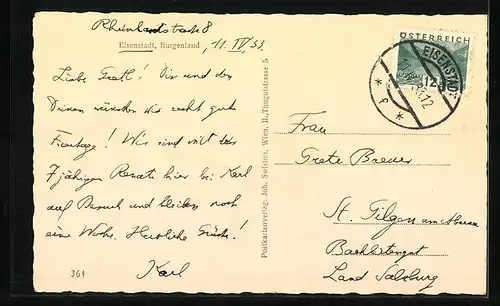 Rheinlandstraße 8
Eisenstadt, Burgenland, 11. IV. 33.
Liebe Gretl! Dir und den
Deinen wünschen wir recht gute
Feiertage! Wir sind mit der
7 jährigen Renate hier bei Karl
auf Besuch und bleiben noch
eine Woche. Herzliche Grüße!
Karl
364
Postkartenverlag: Joh. Swielon, Wien, II., Thugutstrasse 5
ÖSTERREICH
12
EISENSTADT
* f *
Frau
Grete Breuer
St. Gilgen am Abersee
Land Salzburg